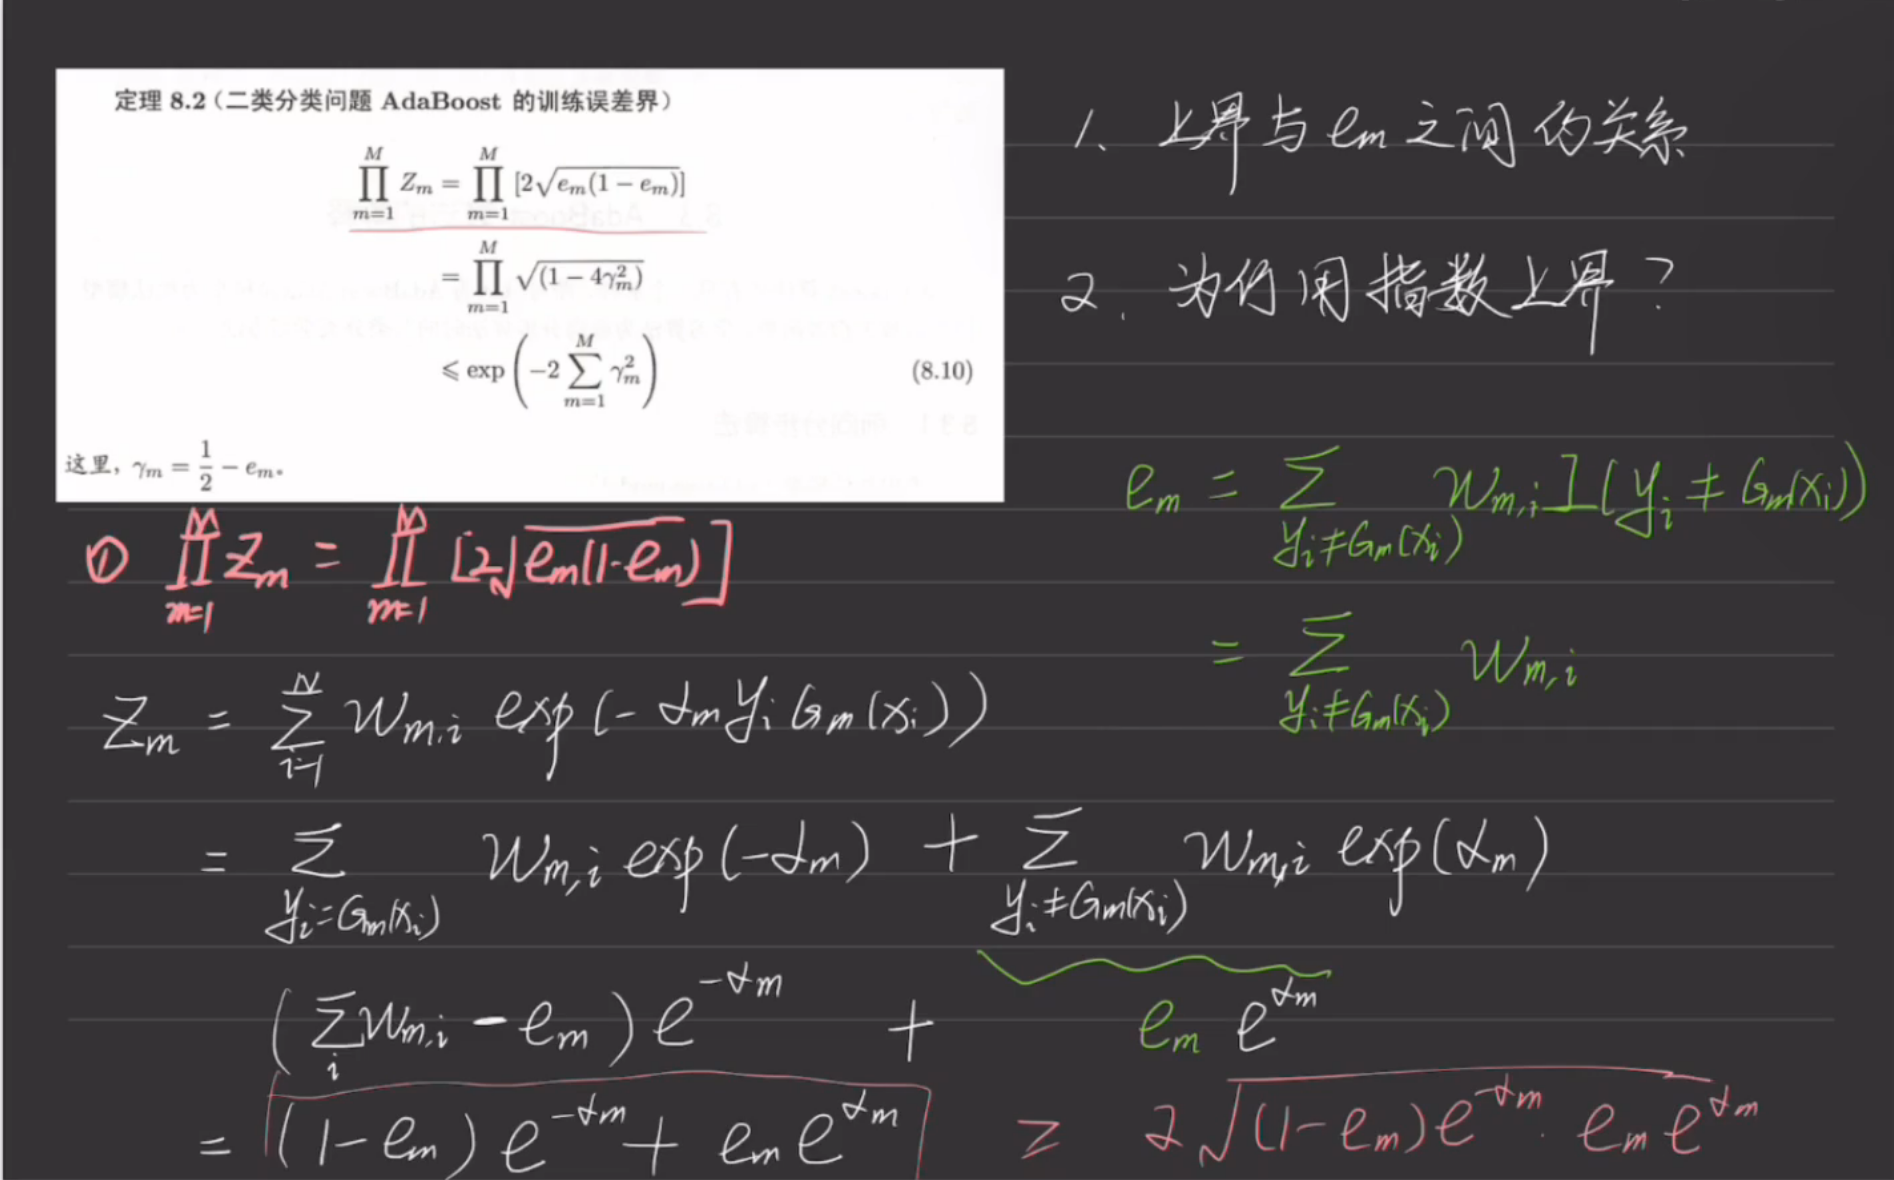 定理 8.2（二类分类问题 AdaBoost 的训练误差界）
∏_{m=1}^{M} Z_m = ∏_{m=1}^{M} [2√(e_m(1 − e_m))]
= ∏_{m=1}^{M} √((1 − 4γ_m^2))
⩽ exp(−2 ∑_{m=1}^{M} γ_m^2) (8.10)
这里，γ_m = 1/2 − e_m。
1. 上界与 e_m 之间的关系
2. 为何用指数上界？
e_m = ∑_{y_i≠G_m(x_i)} w_{m,i} I(y_i ≠ G_m(x_i))
= ∑_{y_i≠G_m(x_i)} w_{m,i}
① ∏_{m=1}^{M} Z_m = ∏_{m=1}^{M} [2√(e_m(1-e_m))]
Z_m = ∑_{i=1}^{N} w_{m,i} exp(-α_m y_i G_m(x_i))
= ∑_{y_i=G_m(x_i)} w_{m,i} exp(-α_m) + ∑_{y_i≠G_m(x_i)} w_{m,i} exp(α_m)
(∑_i w_{m,i} - e_m) e^{-α_m} + e_m e^{α_m}
= (1-e_m) e^{-α_m} + e_m e^{α_m} ≥ 2√((1-e_m) e^{-α_m} · e_m e^{α_m})